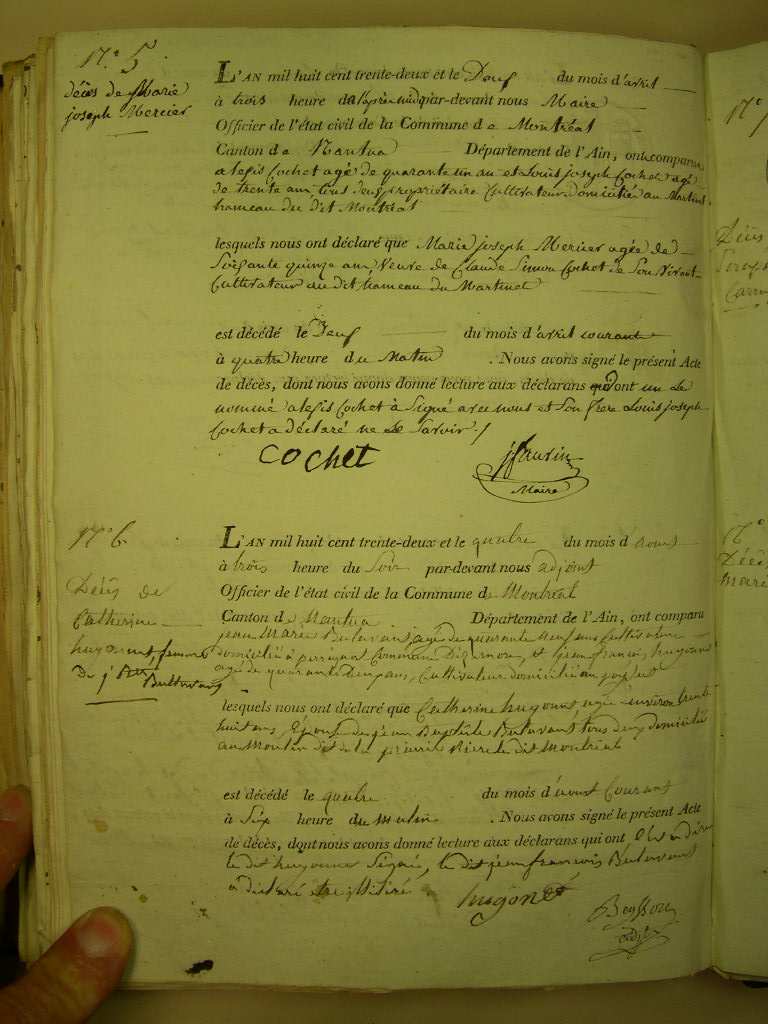 N.° 5
décès de Marie
joseph Mercier
L'AN mil huit cent trente-deux et le Deux du mois d'avril
à trois heure de l'après midi par-devant nous Maire
Officier de l'état civil de la Commune de Montréal
Canton de Nantua Département de l'Ain, ont comparu
alexis Cochet agé de quarante un an et Louis joseph Cochet agé
de trente ans tous deux propriétaire Cultivateur domicilié au Martinet
hameau du dit Montréal
lesquels nous ont déclaré que Marie joseph Mercier agée de
Soixante quinze ans, Veuve de Claude Simon Cochet de Son Vivant
Cultivateur au dit hameau du Martinet
est décédé le Deux du mois d'avril courant
à quatre heure du Matin . Nous avons signé le présent Acte
de décès, dont nous avons donné lecture aux déclarans qui ont un le
nommé alexis Cochet à Signé avec nous et Son frere Louis joseph
Cochet a déclaré ne le Savoir /
COCHET
Maire
N.° 6
Décès de
Catherine
hugonnet, femme
De j. Bte
L'AN mil huit cent trente-deux et le quatre du mois d'aout
à trois heure du Soir par-devant nous adjoint
Officier de l'état civil de la Commune de Montréal
Canton de Nantua Département de l'Ain, ont comparu
jean Marie agé de quarante neuf ans Cultivateur
domicilié à Commune et jean francois hugonnet
agé de quarante ans, Cultivateur domicilié au
lesquels nous ont déclaré que Catherine hugonnet agée environ trente
huit ans, Epouse de jean Baptiste tous deux domicilié
au Moulin dit de la prairie dit Montréal
est décédé le quatre du mois d'aout Courant
à Six heure du matin . Nous avons signé le présent Acte
de décès, dont nous avons donné lecture aux déclarans qui ont
le dit hugonnet Signé, le dit jean francois
a déclaré être illitéré
hugonet
Beysson
adjt